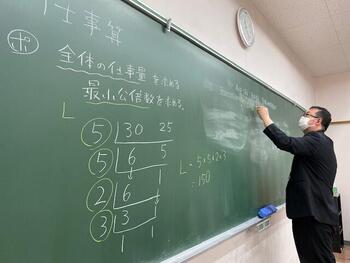 仕事算
ポ 全体の仕事量を求める
最小公倍数を求める。
L
5 30 25
5 6 5
2 6 1
3 3 1
1 1
L = 5×5×2×3
= 150